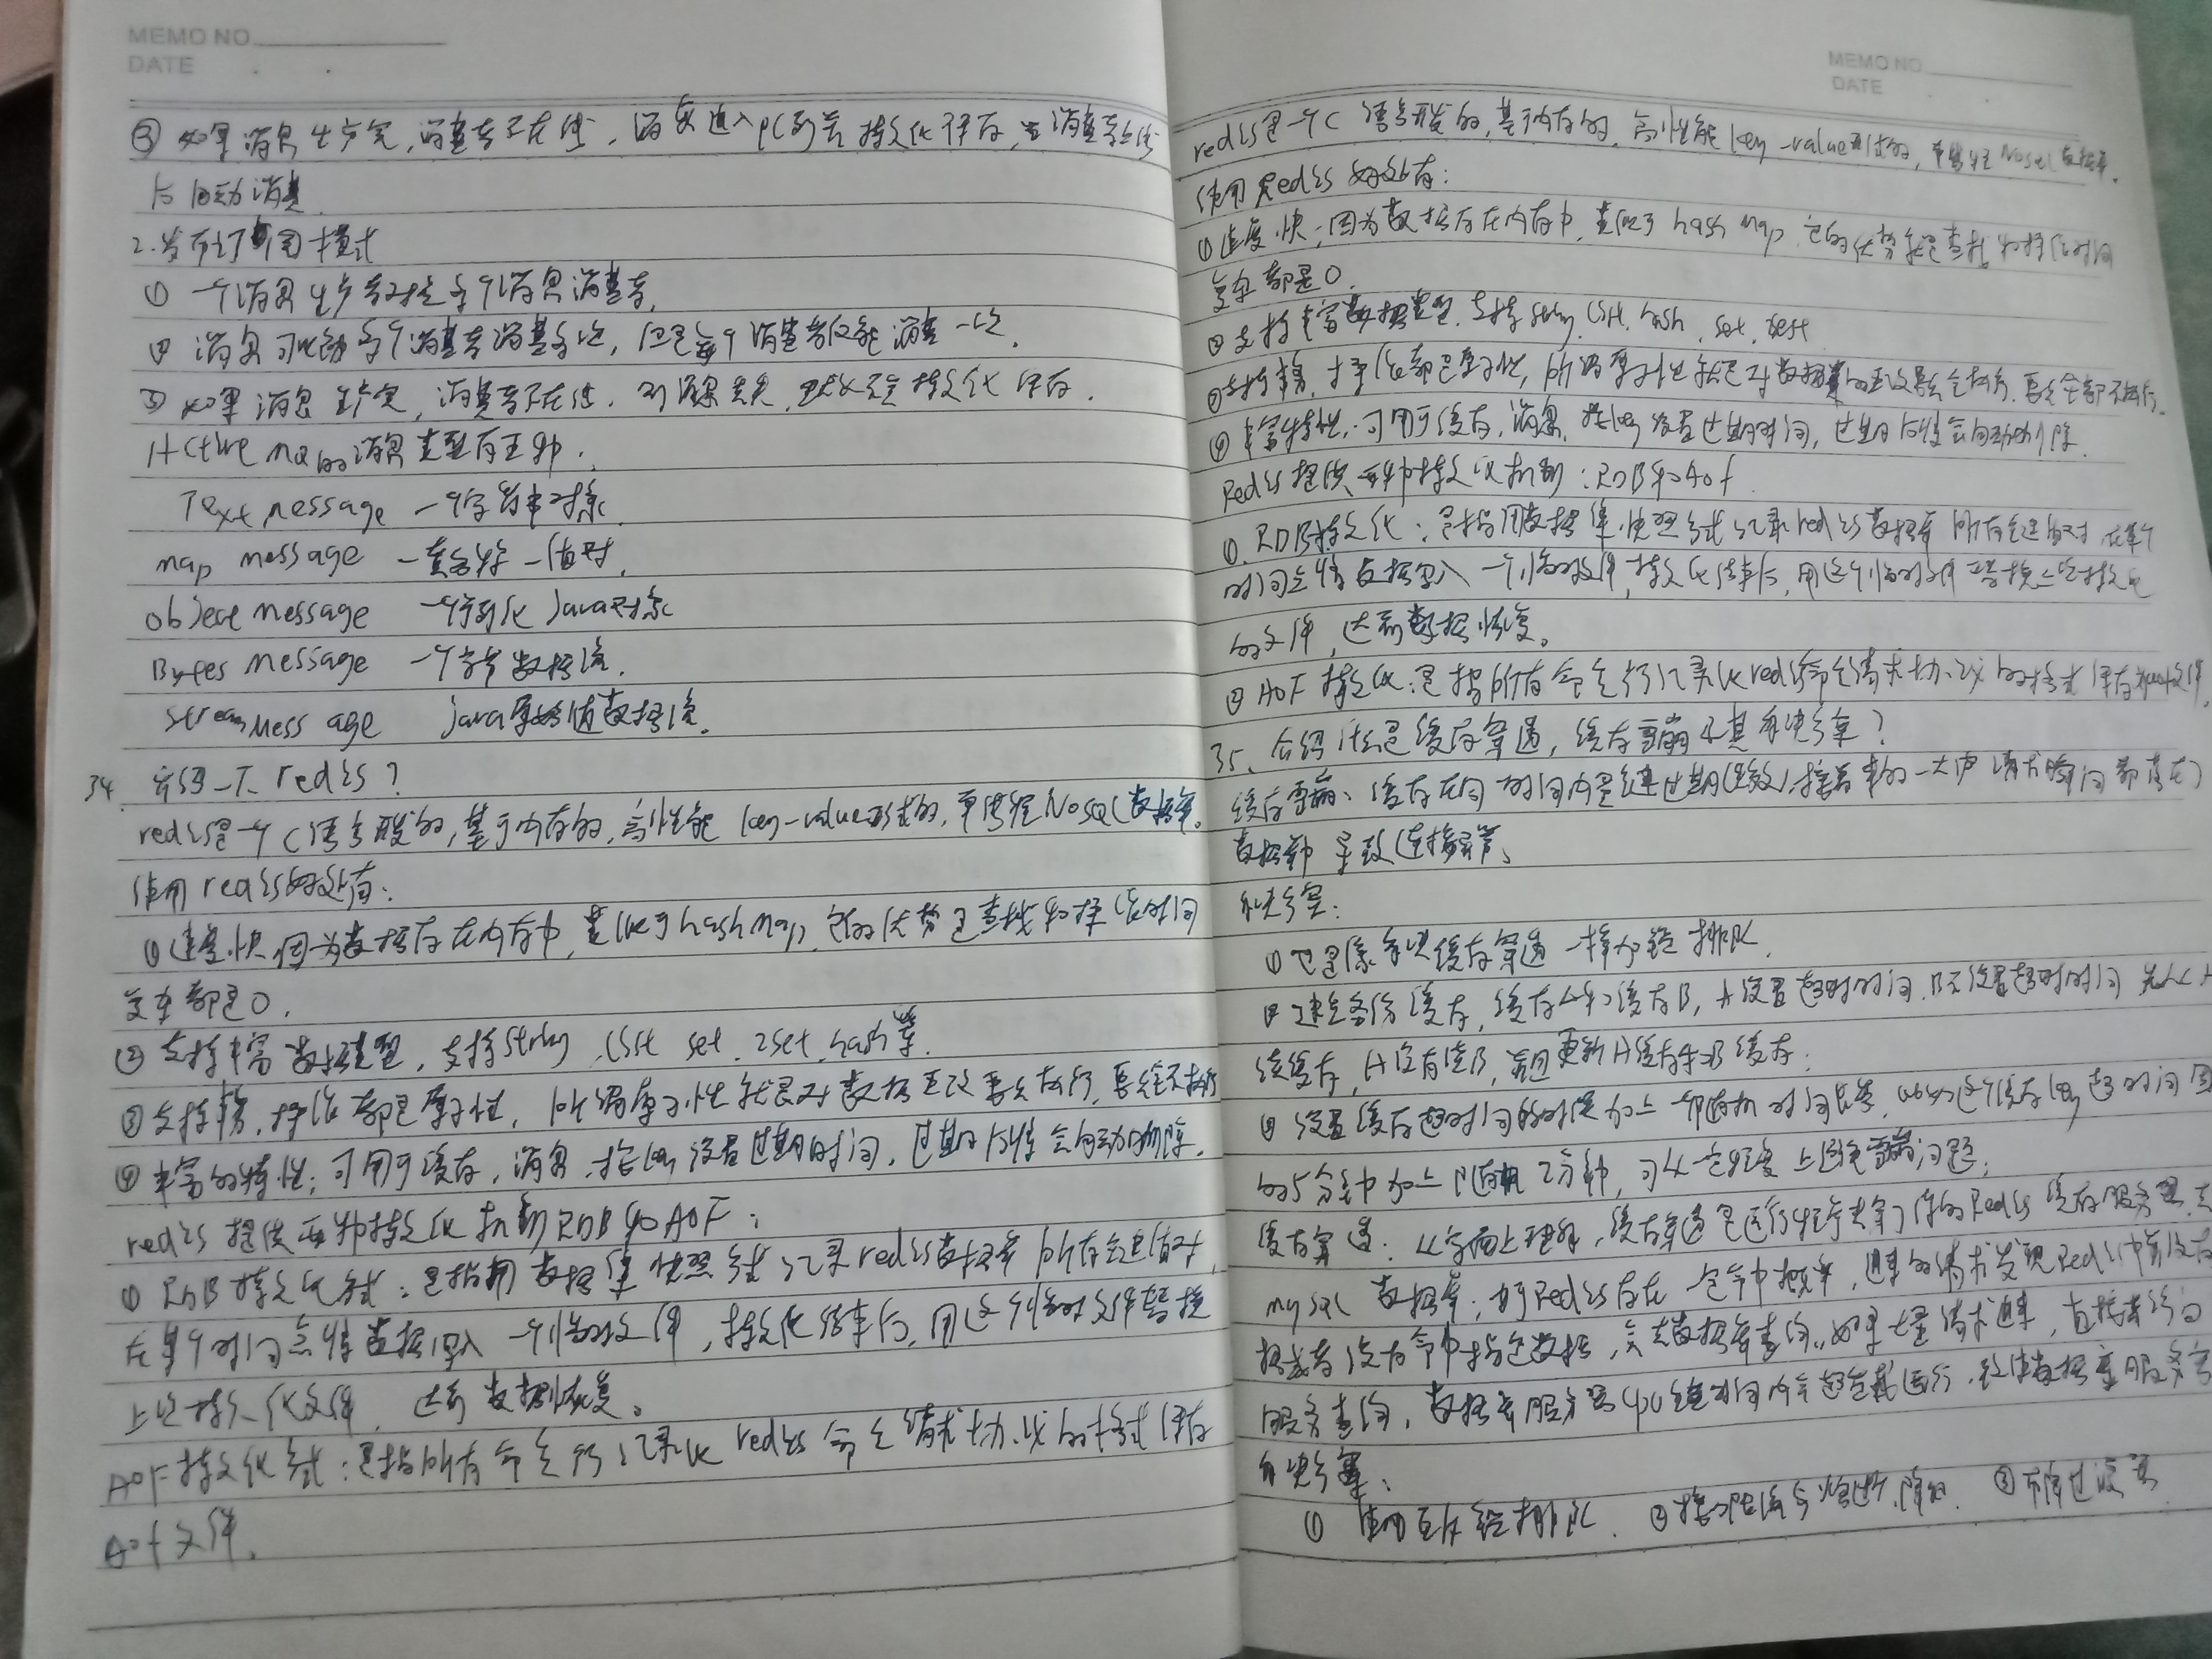 MEMO NO.
DATE
③ 如果消息生产完,消费者不在线,消息进入 列 持久化保存,当消费者上线
后自动消费.
2.发布订阅模式
① 一个消息生产者对应多个消息消费者.
② 消息可以被多个消费者消费多次,但是每个消费者仅能消费一次.
③ 如果消息生产完,消费者不在线. 则消息丢失,默认不是持久化保存.
Active MQ的消息类型有五种.
Text message 一个字符串对象.
map message 一套名称-值对.
object message 一个序列化Java对象
Bytes message 一个字节数据流.
Stream Message java原始值数据流.
34. 介绍一下redis?
redis是一个C语言开发的,基于内存的,高性能key-value形式的,单线程NoSQL数据库.
使用redis好处有:
①速度快,因为数据存在内存中,类似于hash Map,它的优势是查找和操作的时间
复杂都是0.
② 支持丰富数据类型,支持String list set. zset. hash等.
③支持事务,操作都是原子性,所谓原子性就是对数据更改要么执行,要么不执行
④ 丰富的特性:可用于缓存,消息,按key设置过期时间,过期后将会自动删除.
redis提供两种持久化机制RDB和AOF:
① RDB持久化方式:是指用数据集快照方式记录redis数据库所有键值对,
在某个时间点将数据写入一个临时文件,持久化结束后,用这个临时文件替换
上次持久化文件,达到数据恢复。
AOF持久化方式:是指所有命令行记录以redis命令请求协议的格式保存
Aof文件.
MEMO NO.
DATE
redis是一个C语言开发的,基于内存的,高性能key-value形式的,单线程Nosql数据库.
使用Redis好处有:
①速度快:因为数据存在内存中,类似于hash map,它的优势就是查找和操作的时间
复杂都是0.
②支持丰富数据类型.支持string.list.hash.set.
③支持事务,操作都是原子性,所谓原子性就是对数据 更改要么全执行.要么全部不执行.
④丰富特性:可用于缓存,消息,按key设置过期时间,过期后将会自动删除.
Redis提供两种持久化机制:RDB和Aof.
①.RDB持久化:是指用数据集快照方式记录redis数据库所有键值对,在某个
时间点将数据写入一个临时文件,持久化结束后,用这个临时文件替换上次持久化
的文件,达到数据恢复。
② AOF持久化:是指所有命令行记录以redis命令请求协议的格式保存 文件.
35. 介绍什么是缓存穿透,缓存雪崩及其解决方案?
缓存雪崩:缓存在同一时间内 键过期(失效),接着来的一大波请求瞬间都落在了
数据 导致连接异常.
解决方案:
① 也是像解决缓存穿透一样加锁排队.
② 建立备份缓存,缓存A和缓存B,A设置超时时间,B不设置超时时间,先从A
读缓存,A没有读B,并且更新A缓存和B缓存.
③ 设置缓存超时时间的时候加上一个随机时间长度,比如这个缓存key超时时间 
的5分钟加上随机2分钟,可从一定程度上避免雪崩问题;
缓存穿透:从字面上理解,缓存穿透是 穿了你的Redis缓存服务器,
mysql数据库;由于Redis存在一定命中概率,进来的请求发现Redis中
或者没有命中指定数据,会去数据库查询.如果大量请求进来,直接
服务查询,数据库服务器cpu短时间内会超负载运行,致使数据库服务
解决方案:
① 使用互斥锁排队. ②接口限流与熔断、降级. ③布隆过滤器